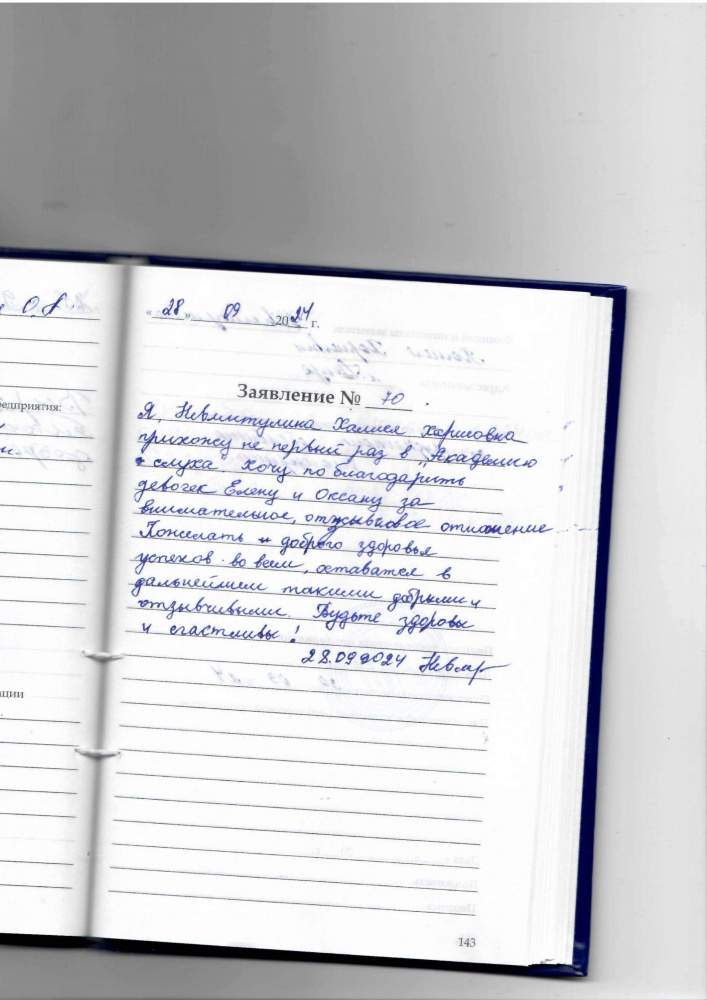 О.А.
едприятия:
ации
« 28 » 09 2024 г.
Заявление № 70
Я, Невлитулина Халися Харисовна
прихожу не первый раз в „Академию
слуха хочу поблагодарить
девочек Елену и Оксану за
внимательное, отзывковое отношение
Пожелать доброго здоровья
успехов во всем, остават­ся в
дальнейшем такими добрыми и
отзывчивыми. Будьте здоровы
и счастливы!
28.09 2024
143